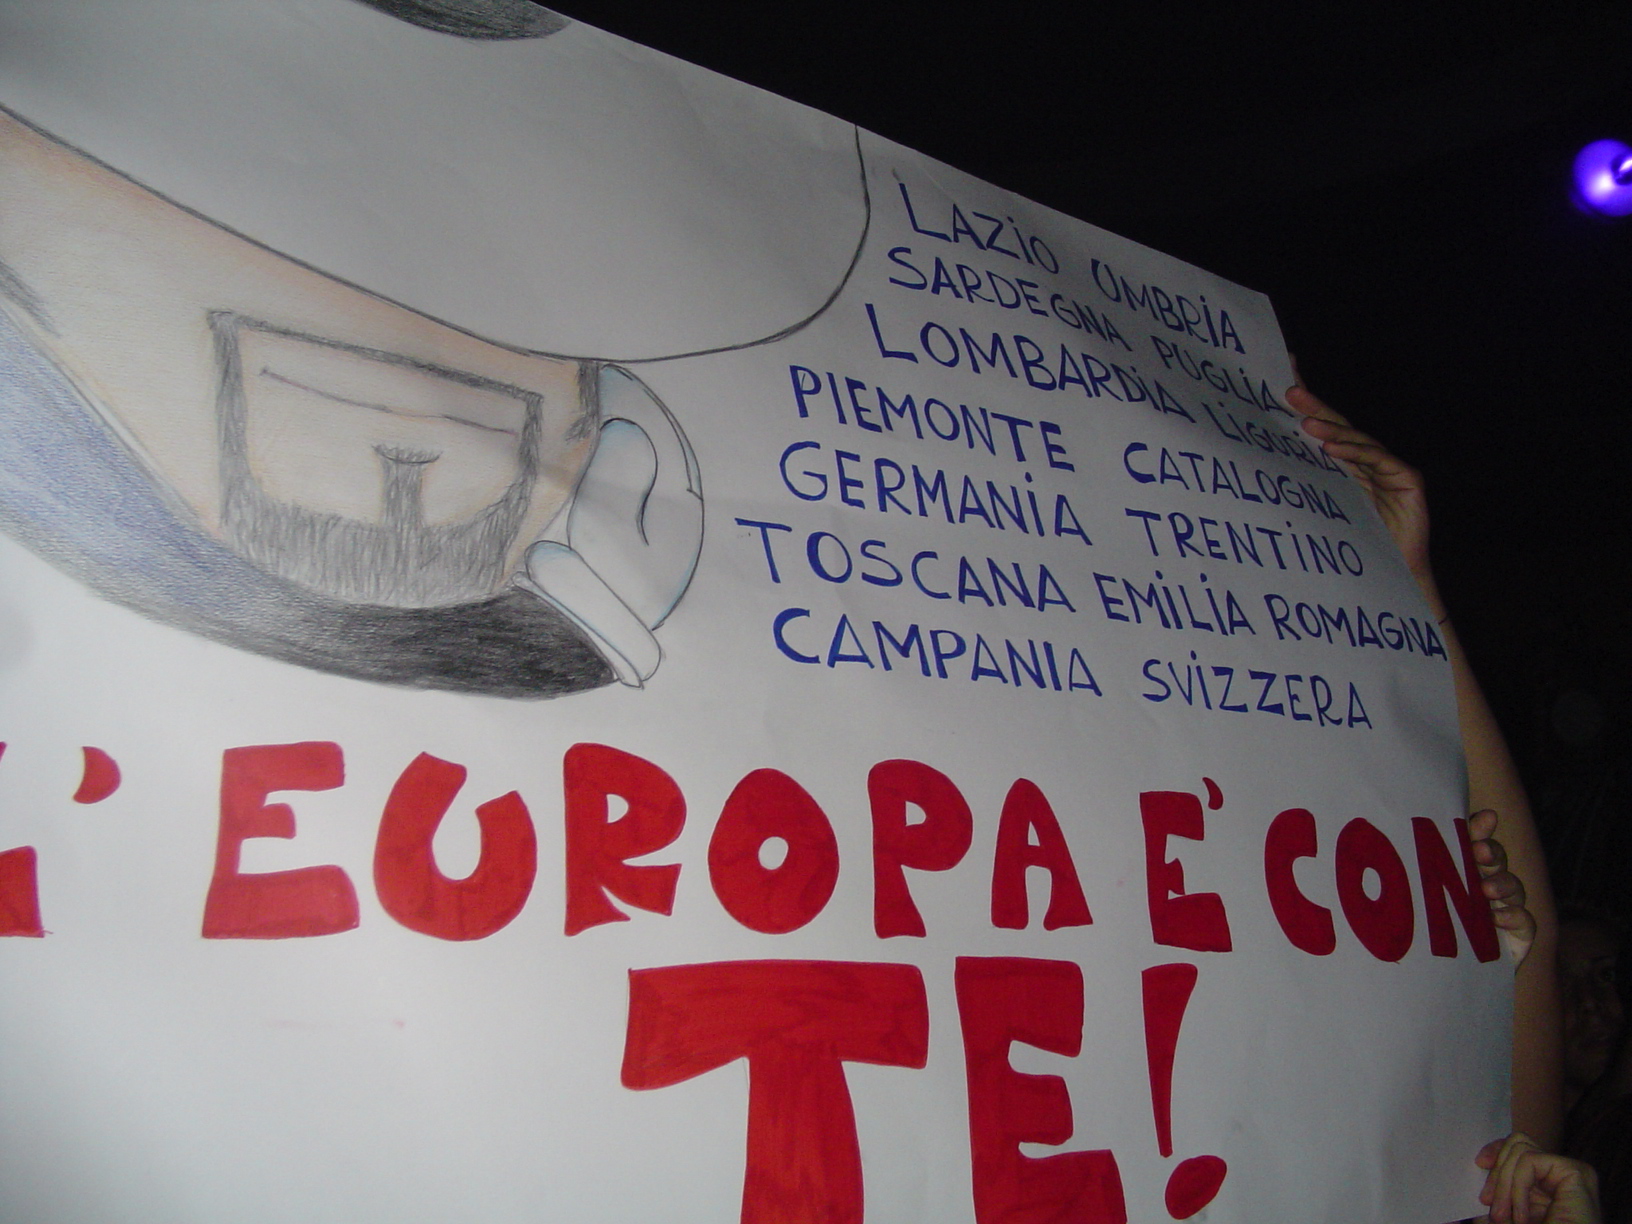 LAZIO UMBRIA
SARDEGNA PUGLIA
LOMBARDIA LIGURIA
PIEMONTE CATALOGNA
GERMANIA TRENTINO
TOSCANA EMILIA ROMAGNA
CAMPANIA SVIZZERA
L'EUROPA E' CON
TE!